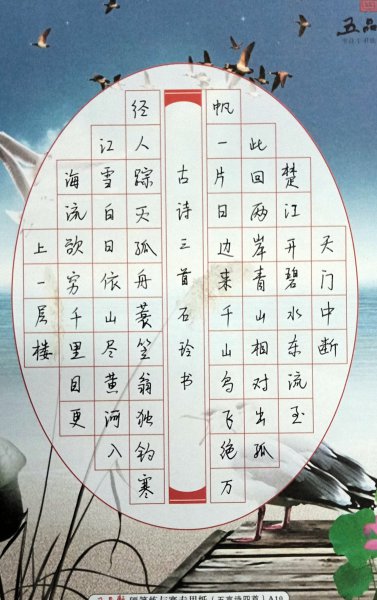 五品
天门中断
楚江开碧水东流至
此回两岸青山相对出孤
帆一片日边来千山鸟飞绝万
古诗三首石玲书
径人踪灭孤舟蓑笠翁独钓寒
江雪白日依山尽黄河入
海流欲穷千里目更
上一层楼